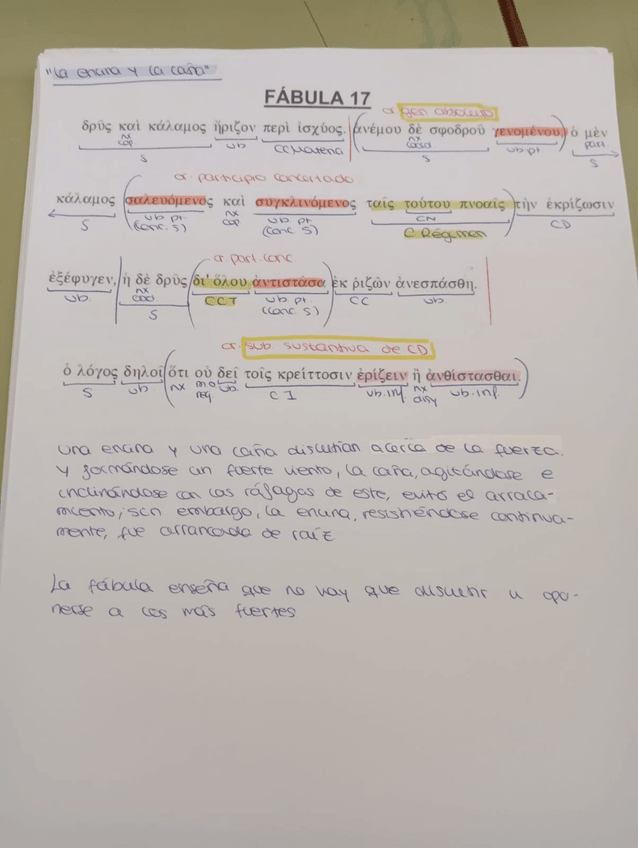 "La encina y la caña"
FÁBULA 17
or gen absoluto
δρῦς καὶ κάλαμος ἤριζον περὶ ἰσχύος. (ἀνέμου δὲ σφοδροῦ γενομένου,) ὁ μὲν
nx nx
cop coord part.
S vb CC Materia S vb pt S
or participio concertado
κάλαμος (σαλευόμενος καὶ συγκλινόμενος ταῖς τούτου πνοαῖς) τὴν ἐκρίζωσιν
S vb pt. nx vb pt. CN CD
(conc. S) cop (conc. S) C Régimen
or part. conc.
ἐξέφυγεν, ἡ δὲ δρῦς (δι' ὅλου ἀντιστᾶσα) ἐκ ῥιζῶν ἀνεσπάσθη.
vb. nx CCT vb pt. CC vb.
coord (conc S)
S
or. sub sustantiva de CD
ὁ λόγος δηλοῖ (ὅτι οὐ δεῖ τοῖς κρείττοσιν ἐρίζειν ἢ ἀνθίστασθαι.)
S vb nx mod vb. CI vb.inf nx vb.inf.
neg disy
una encina y una caña discutían acerca de la fuerza.
y formándose un fuerte viento, la caña, agitándose e
inclinándose con las ráfagas de este, evitó el arranca-
miento; sin embargo, la encina, resistiéndose continua-
mente, fue arrancada de raíz
La fábula enseña que no hay que discutir u opo-
nerse a los más fuertes